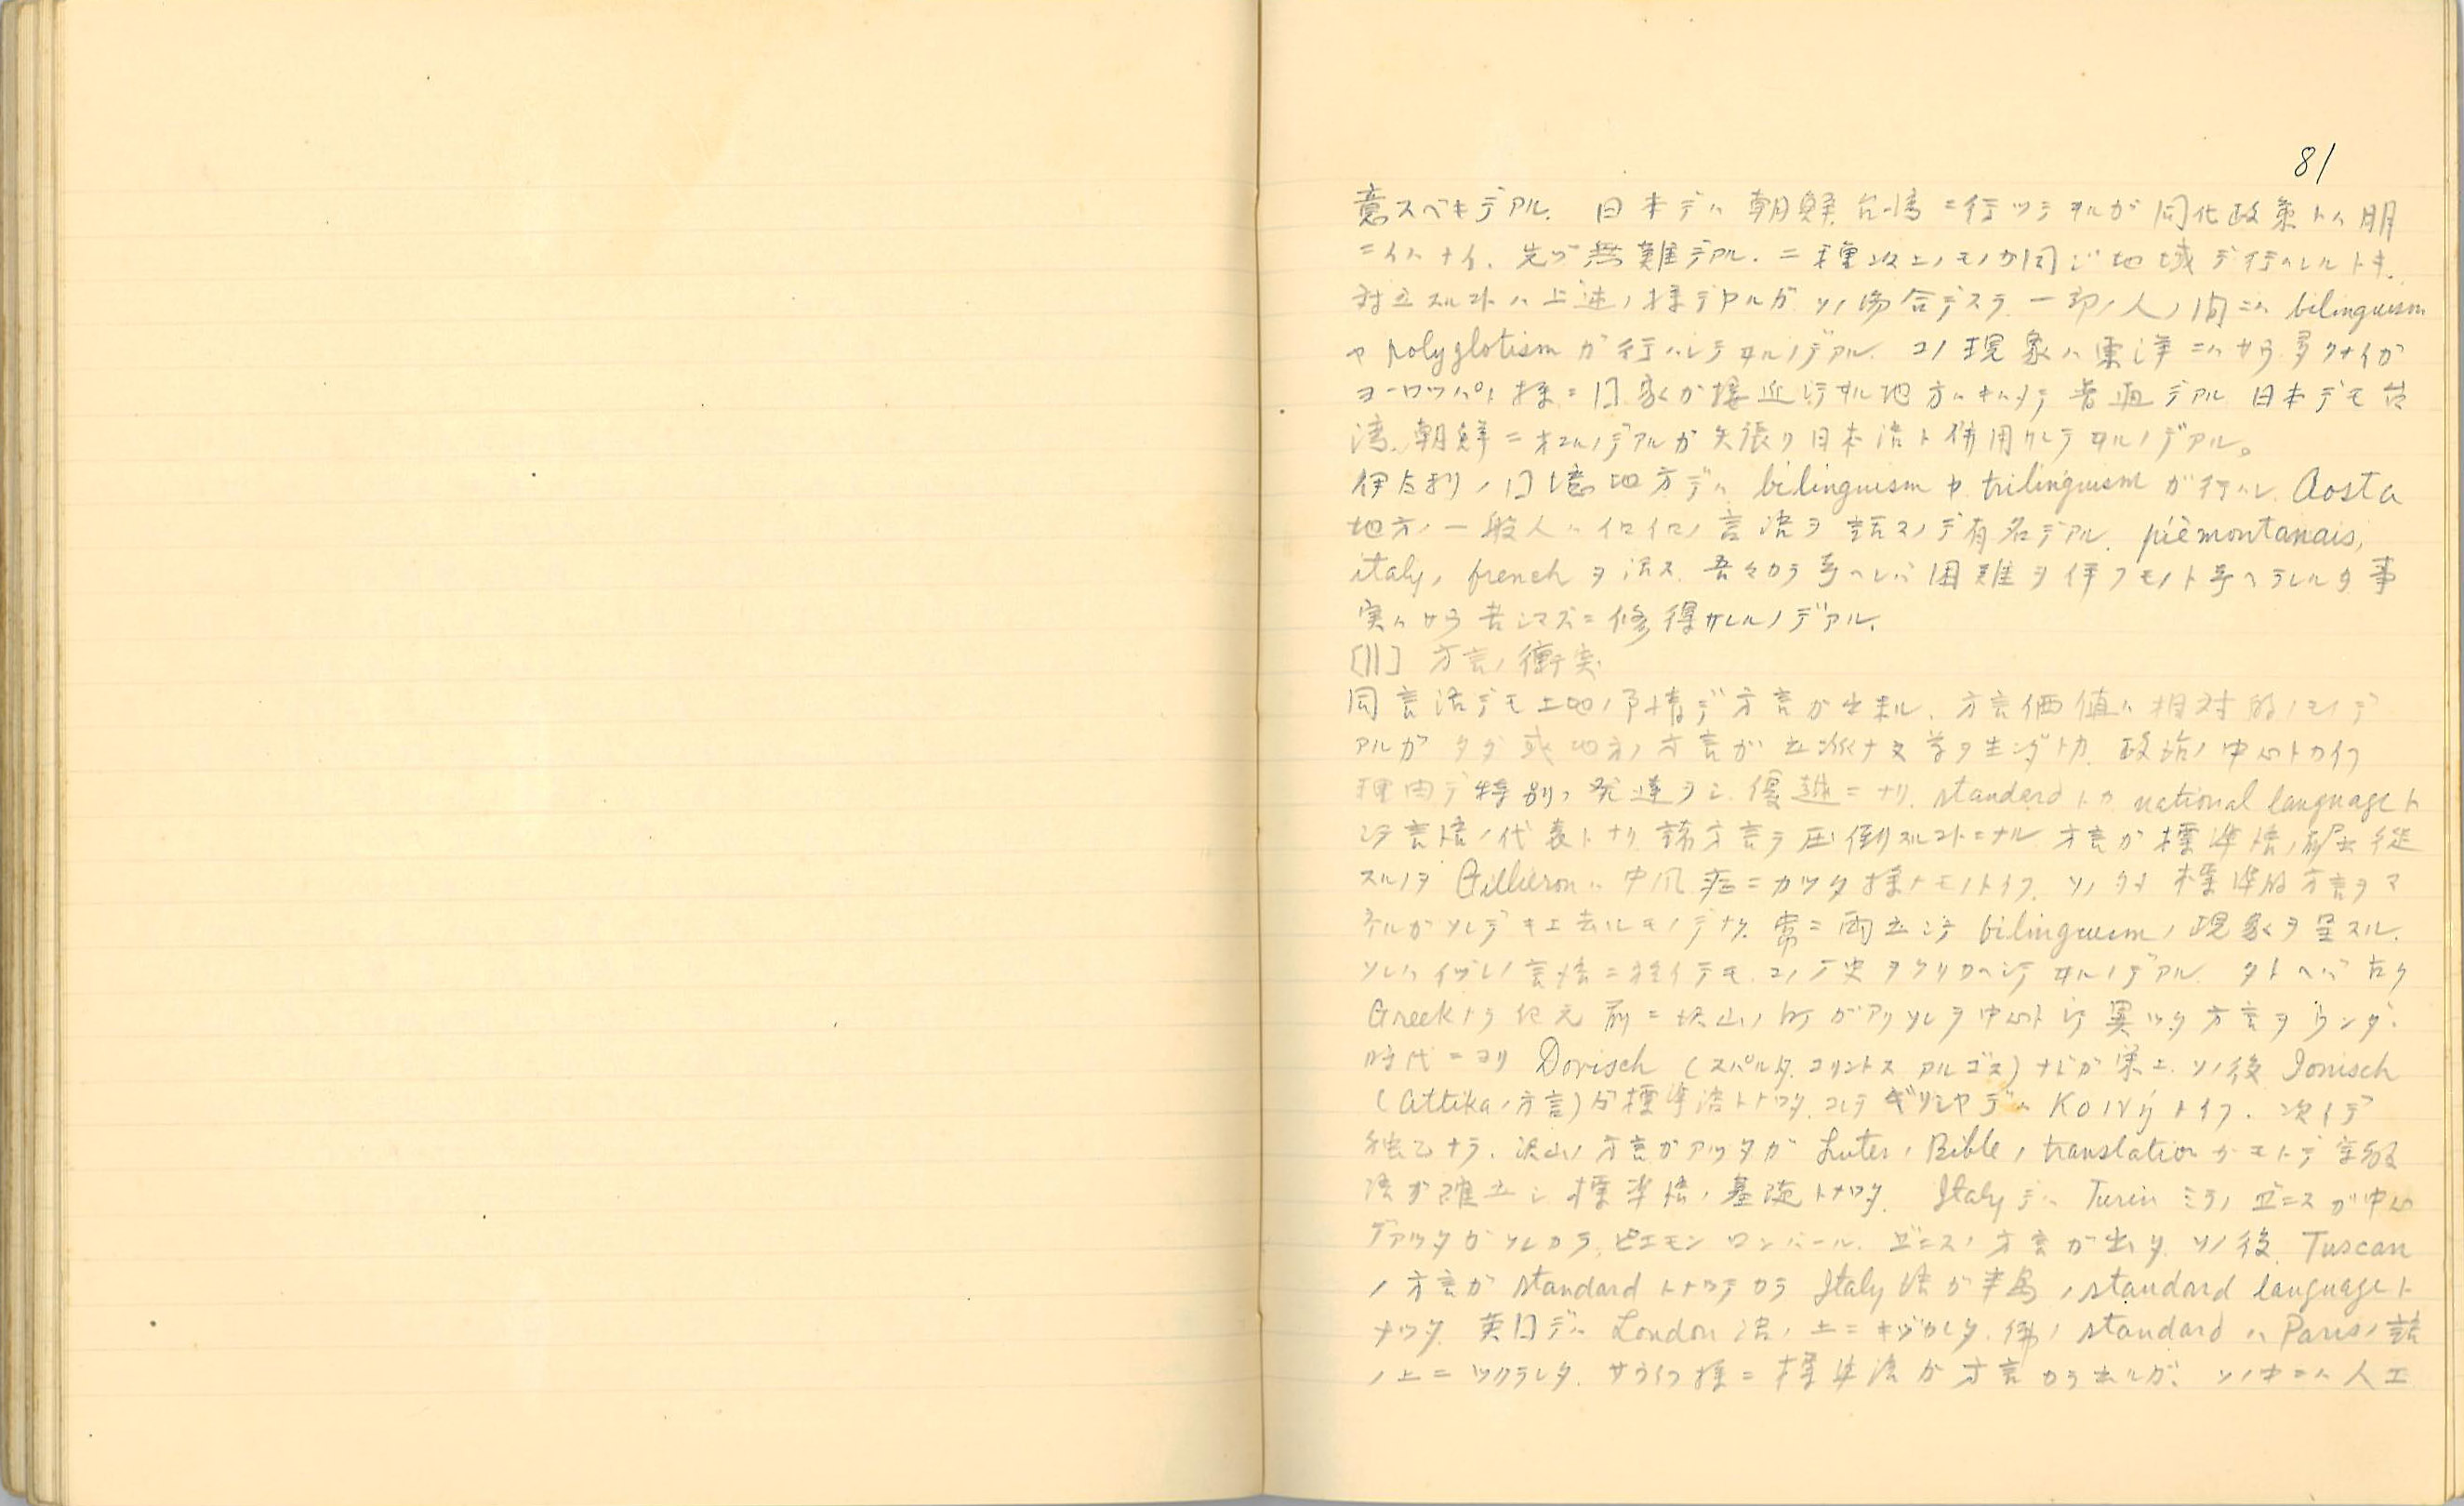 81
意スベキデアル. 日本デハ朝鮮台湾ニ行ツテヰルガ同化政策トハ明
ニイハナイ. 先ヅ無難デアル. 二種以上ノモノガ同ジ地域デ行ハレルトキ.
対立スルコトハ上述ノ様デアルガ ソノ場合デスラ 一部ノ人ノ間ニハ bilinguism
ヤ polyglotism ガ行ハレテヰルノデアル. コノ現象ハ東洋ニハサウ多クナイガ
ヨーロッパノ様ニ国家ガ接近シテヰル地方ハキハメテ普通デアル 日本デモ台
湾、朝鮮ニオコルノデアルガ矢張リ日本語ト併用サレテヰルノデアル。
伊太利ノ国境地方デハ bilinguism ヤ trilinguism ガ行ハレ Aosta
地方ノ一般人ハイロイロノ言語ヲ話スノデ有名デアル. piémontanais,
italy, french ヲ話ス. 吾々カラ考ヘレバ困難ヲ伴フモノト考ヘラレルガ事
実ハサウ苦シマズニ修得サレルノデアル.
[II] 方言ノ衝突
同言語デモ土地ノ事情デ方言ガ出来ル. 方言価値ハ相対的ノモノデ
アルガ タダ或地方ノ方言ガ立派ナ文学ヲ生ンダトカ 政治ノ中心トカイフ
理由デ特別ノ発達ヲシ 優越ニナリ. standard トカ national language ト
シテ言語ノ代表トナリ 諸方言ヲ圧倒スルコトニナル 方言ガ標準語ノ屈従
スルノヲ Gilliéron ハ中風病ニカカツタ様ナモノトイフ. ソノ 標準的方言ヲマ
ネルガソレデキエ去ルモノデナク. 常ニ両立シテ bilinguism ノ現象ヲ呈スル.
ソレハイヅレノ言語ニ於イテモ コノ歴史ヲクリカヘシテヰルノデアル. タトヘバ古ク
Greek ナラ紀元前ニ沢山ノ町ガアリソレヲ中心トシテ異ツタ方言ヲウンダ.
時代ニヨリ Dorisch (スパルタ. コリントス アルゴス) ナドガ栄エ. ソノ後 Ionisch
(Attikaノ方言)ガ標準語トナツタ. コレヲギリシヤデハ Κοινή トイフ. 次イデ
独乙ナラ. 沢山ノ方言ガアツタガ Luter ノ Bible ノ translation ガモトデ 
語ガ確立シ 標準語ノ基礎トナツタ. Italy デハ Turin ミラノ ヴニスガ中心
デアツタガソレカラ, ピエモン ロンバール. ヴニスノ方言ガ出タ. ソノ後 Tuscan
ノ方言ガ standard トナツテカラ Italy 語ガ半島ノ standard language ト
ナツタ. 英国デハ London 語ノ上ニキヅカレタ. 佛ノ standard ハ Paris ノ語
ノ上ニツクラレタ. サウイフ様ニ標準語ガ方言カラ出ルガ. ソノ中ニハ人工